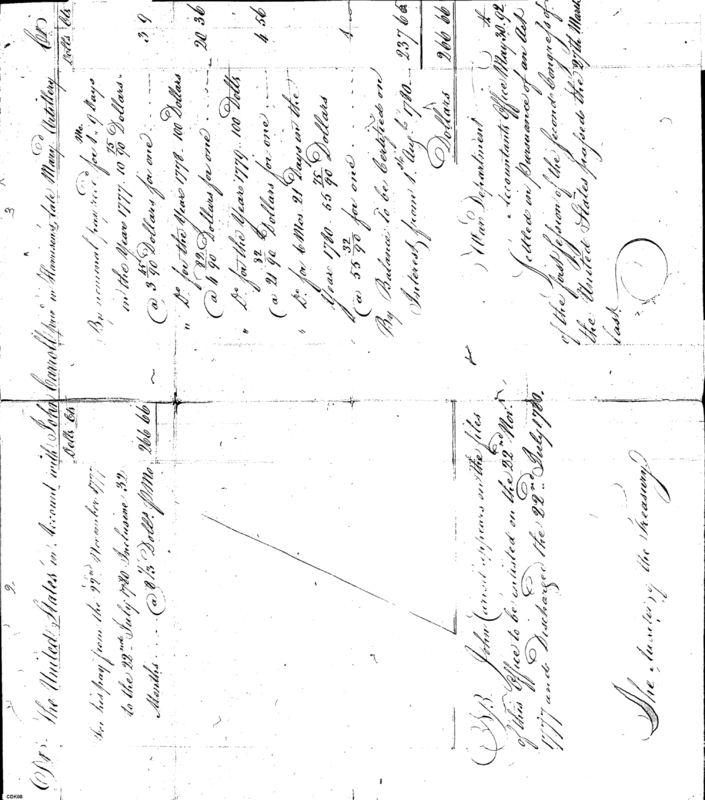 Dr. The United States in Account with John Carroll in Harrisons late Mary Artillery Cr.
Dolls Cts
For his pay from the 22nd November 1777
to the 22nd July 1780 Inclusive 32
Months .... @ 8 1/3 Dolls. p Mo 266 66
NB John Carrol appears on the files
of this Office to be enlisted on the 22nd Nov.
1777 and Discharged the 22nd July 1780.
The Auditor of the Treasury
Dolls Cts
By nominal pay for 1 Mo. 9 Days
in the Year 1777. 10 75/90 Dollars.
@ 3 Dollars for one .... 3 9
" Do. for the Year 1778. 100 Dollars
@ 4 82/90 Dollars for one ... 20 36
" Do. for the Year 1779. 100 Dolls
@ 21 82/90 Dollars for one ... 4 56
" Do. for 6 Mos 21 Days in the
Year 1780 55 75/90 Dollars
@ 55 32/90 for one .... 1
By Balance to be Certified on
Interest from 1st Aug. 1780 .... 237 64
Dollars 266 66
War Department
Accountants Office May 30. 92
Settled in Pursuance of an Act
of the first session of the second Congress of
the United States passed the 27th March
last.
CBK08